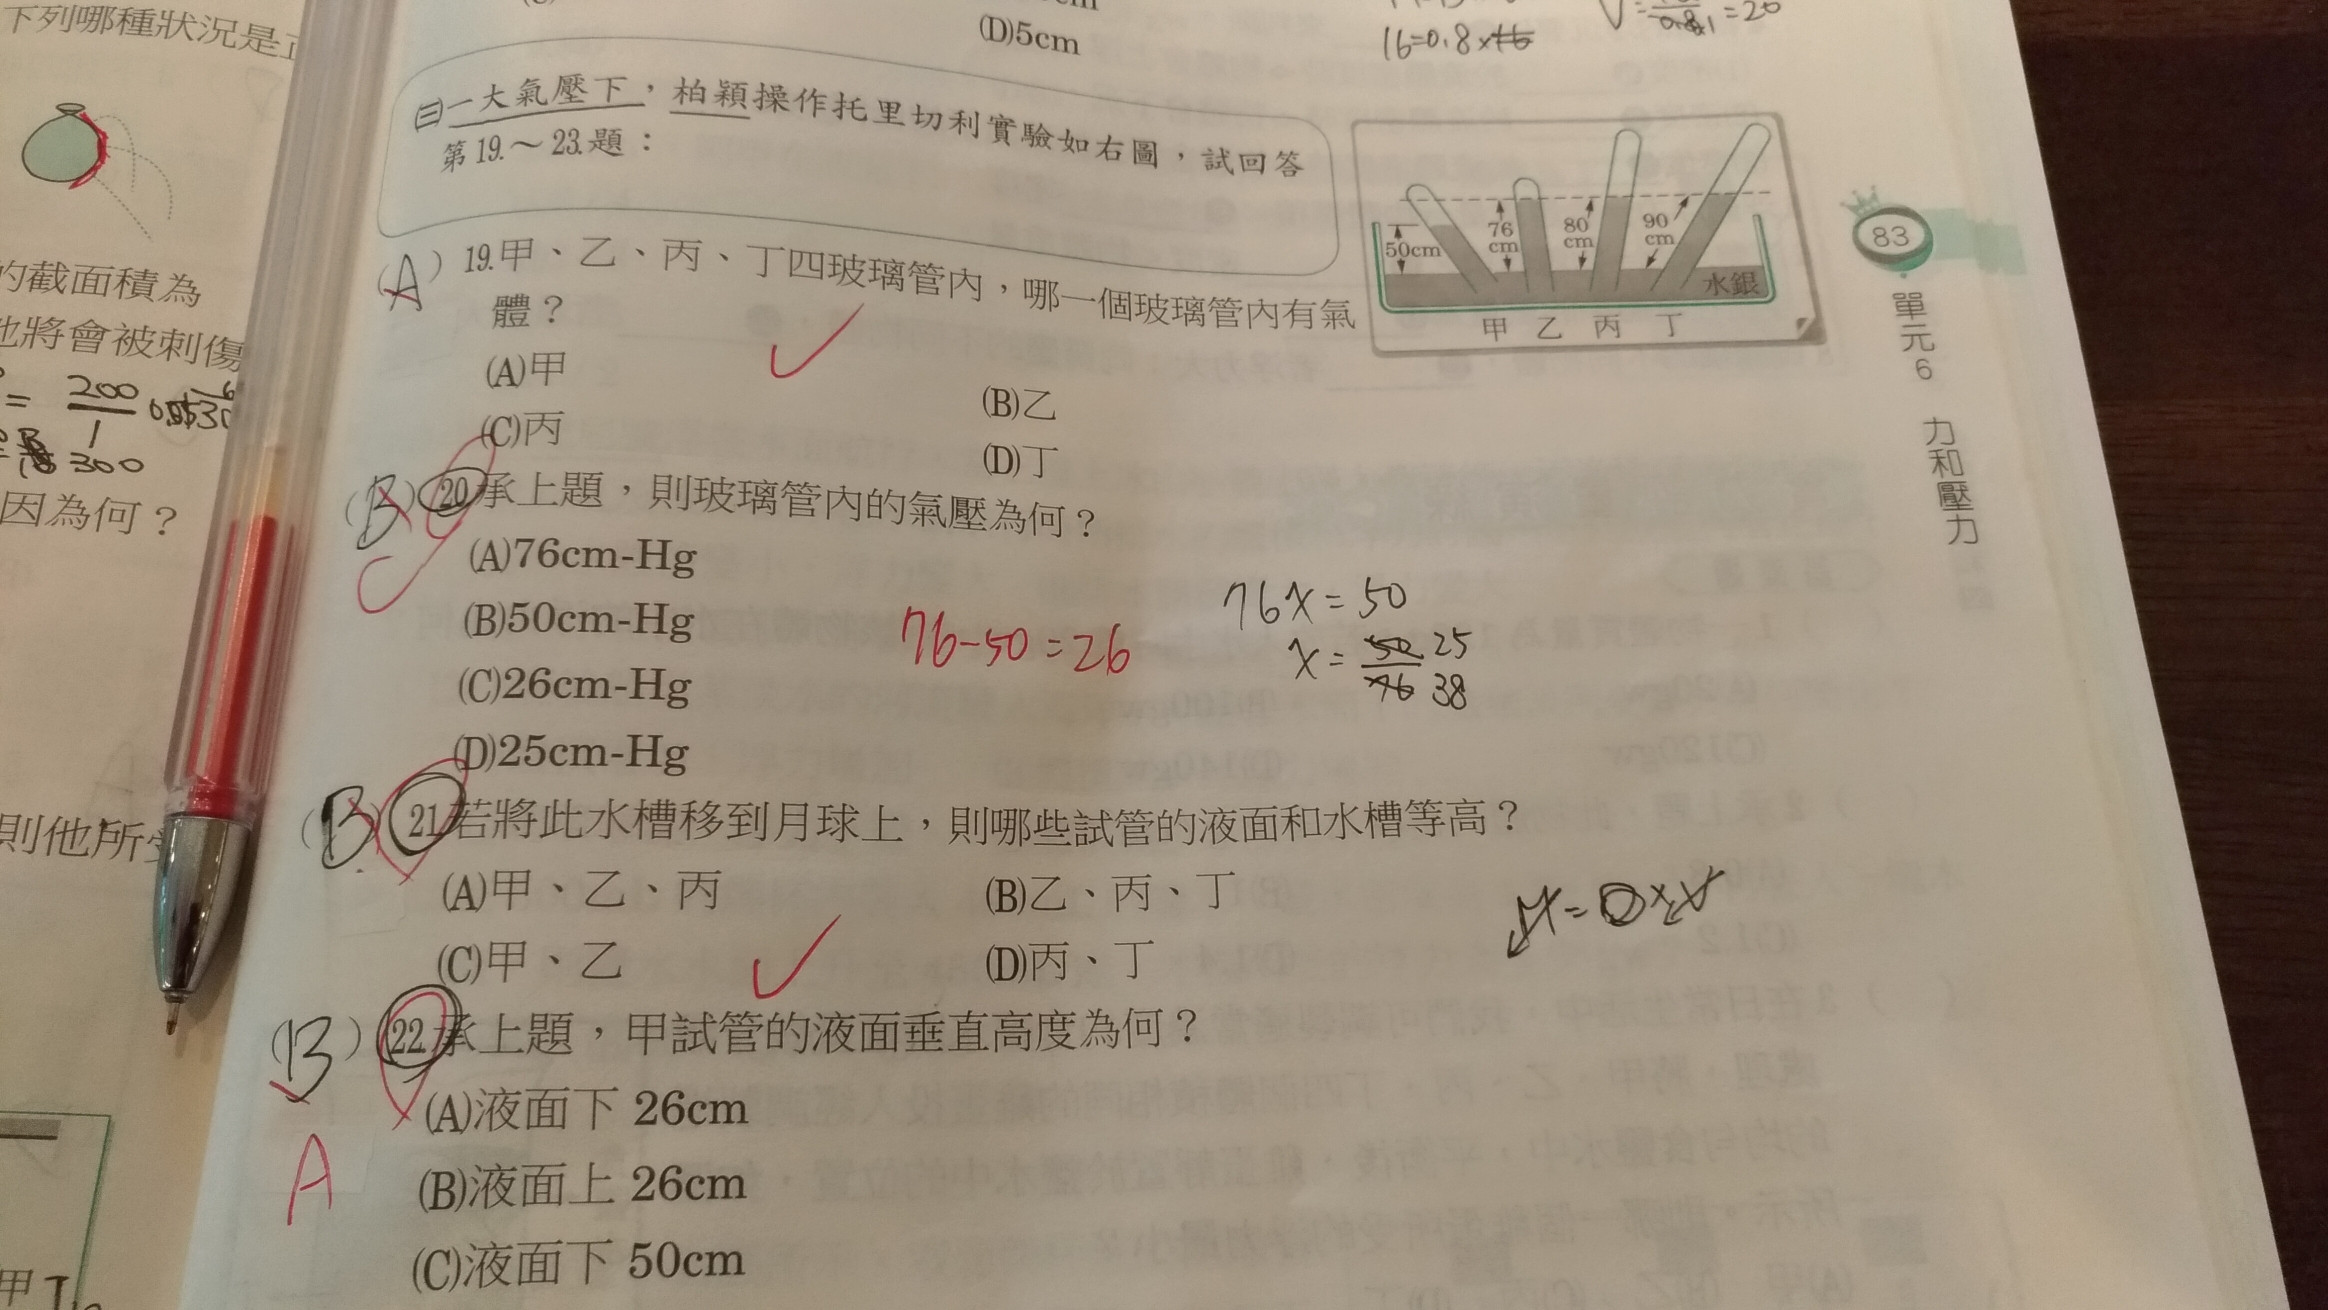 下列哪種狀況是
的截面積為
他將會被刺傷
= 200
1
300
因為何？
則他所受
甲
(D)5cm
16=0.8×16
=20
㊂一大氣壓下，柏穎操作托里切利實驗如右圖，試回答
第19.～23.題：
50cm
76
cm
80
cm
90
cm
水銀
甲 乙 丙 丁
(A) 19.甲、乙、丙、丁四玻璃管內，哪一個玻璃管內有氣
體？
(A)甲
(B)乙
(C)丙
(D)丁
(B) 20.承上題，則玻璃管內的氣壓為何？
C
(A)76cm-Hg
(B)50cm-Hg
(C)26cm-Hg
(D)25cm-Hg
76-50=26
76x=50
x= 50 25
76 38
(B) 21.若將此水槽移到月球上，則哪些試管的液面和水槽等高？
(A)甲、乙、丙
(B)乙、丙、丁
(C)甲、乙
(D)丙、丁
(B) 22.承上題，甲試管的液面垂直高度為何？
A
(A)液面下 26cm
(B)液面上 26cm
(C)液面下 50cm
83
單元6 力和壓力